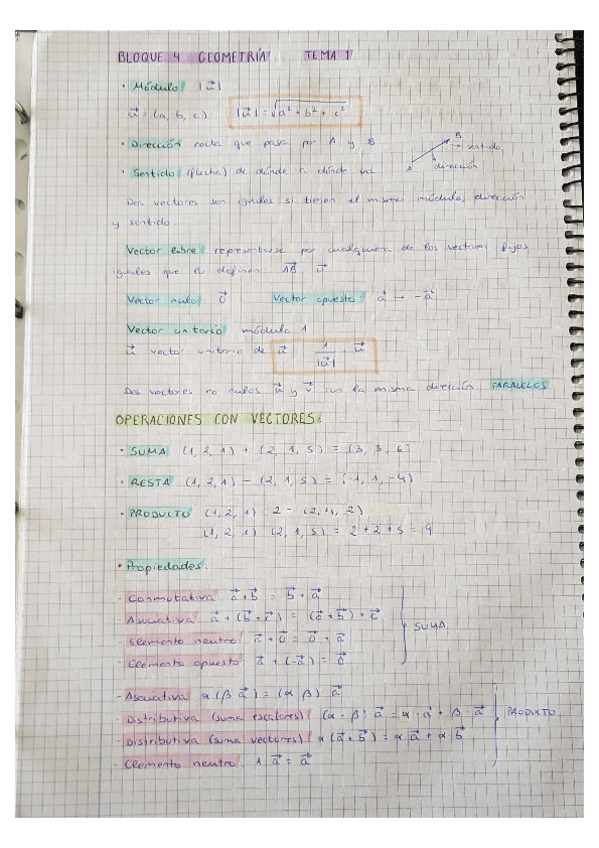 BLOQUE 4 GEOMETRÍA. TEMA 1
• Módulo |u⃗|
u⃗ = (a, b, c) |u⃗| = √(a² + b² + c²)
• Dirección recta que pasa por A y B
A B → sentido dirección
• Sentido (flecha) de dónde a dónde va
Dos vectores son iguales si tienen el mismo módulo, dirección
y sentido.
Vector libre: representarse por cualquiera de los vectores fijos
iguales que lo definen AB⃗ u⃗
Vector nulo: 0⃗ Vector opuesto: a⃗ → -a⃗
Vector unitario módulo 1
u⃗ vector unitario de u⃗ 1/|u⃗| · u⃗
Dos vectores no nulos u⃗ y v⃗ con la misma dirección PARALELOS
OPERACIONES CON VECTORES:
• SUMA (1, 2, 1) + (2, 1, 5) = (3, 3, 6)
• RESTA (1, 2, 1) - (2, 1, 5) = (-1, 1, -4)
• PRODUCTO (1, 2, 1) · 2 = (2, 4, 2)
(1, 2, 1) · (2, 1, 5) = 2 + 2 + 5 = 9
• Propiedades:
- Conmutativa a⃗ + b⃗ = b⃗ + a⃗
- Asociativa a⃗ + (b⃗ + c⃗) = (a⃗ + b⃗) + c⃗
- Elemento neutro: a⃗ + 0⃗ = 0⃗ + a⃗
- Elemento opuesto: a⃗ + (-a⃗) = 0⃗
SUMA
- Asociativa α (β a⃗) = (α β) a⃗
- Distributiva (suma escalares) (α + β) a⃗ = α · a⃗ + β · a⃗
- Distributiva (suma vectores) α (a⃗ + b⃗) = α a⃗ + α b⃗
- Elemento neutro 1 · a⃗ = a⃗
PRODUCTO